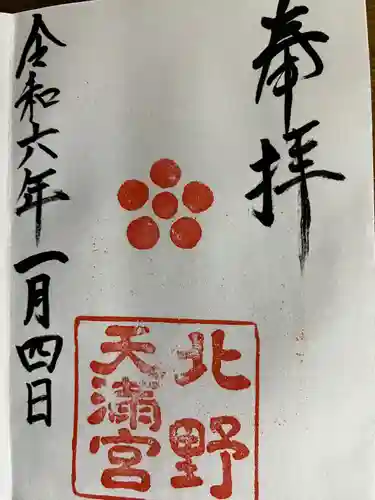 奉拝
北野
天満宮
令和六年一月四日